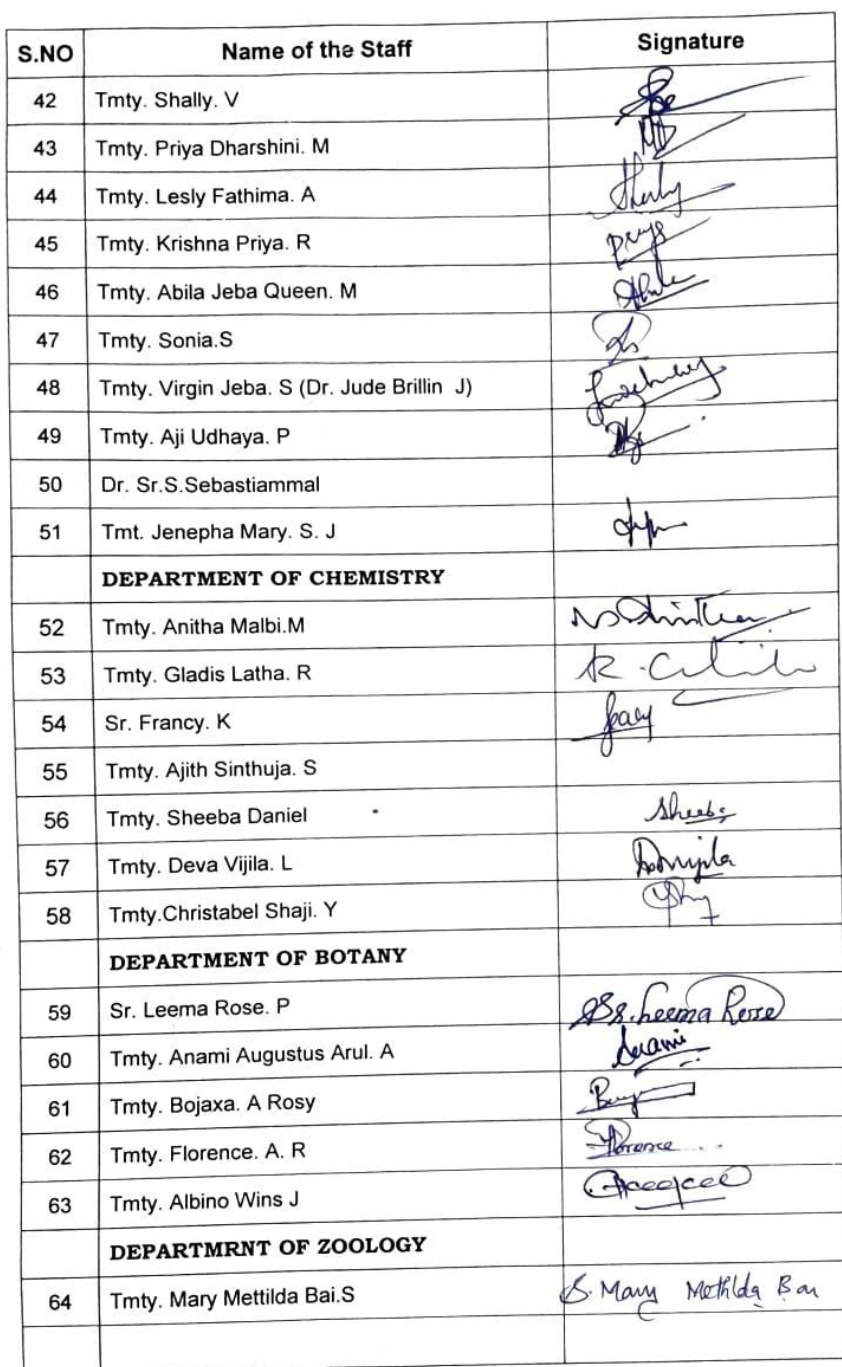 S.NO Name of the Staff Signature
42 Tmty. Shally. V
43 Tmty. Priya Dharshini. M
44 Tmty. Lesly Fathima. A
45 Tmty. Krishna Priya. R
46 Tmty. Abila Jeba Queen. M
47 Tmty. Sonia.S
48 Tmty. Virgin Jeba. S (Dr. Jude Brillin J)
49 Tmty. Aji Udhaya. P
50 Dr. Sr.S.Sebastiammal
51 Tmt. Jenepha Mary. S. J
DEPARTMENT OF CHEMISTRY
52 Tmty. Anitha Malbi.M
53 Tmty. Gladis Latha. R
54 Sr. Francy. K
55 Tmty. Ajith Sinthuja. S
56 Tmty. Sheeba Daniel Sheeba
57 Tmty. Deva Vijila. L
58 Tmty.Christabel Shaji. Y
DEPARTMENT OF BOTANY
59 Sr. Leema Rose. P Leema Rose
60 Tmty. Anami Augustus Arul. A Anami
61 Tmty. Bojaxa. A Rosy
62 Tmty. Florence. A. R Florence
63 Tmty. Albino Wins J
DEPARTMRNT OF ZOOLOGY
64 Tmty. Mary Mettilda Bai.S S. Mary Methilda Bai